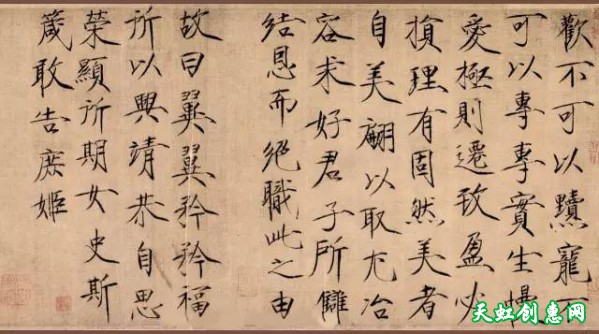 歡不可以黷寵不
可以專專實生慢
愛極則遷致盈必
損理有固然美者
自美翩以取尤冶
容求好君子所讎
結恩而絕職此之由
故曰翼翼矜矜福
所以興靖恭自思
榮顯所期女史斯
箴敢告庶姬
天虹创惠网